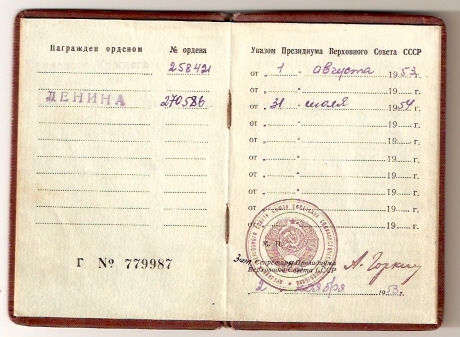 Награжден орденом
№ ордена
Трудового Красного
258421
ЛЕНИНА
270586
Г № 779987
Указом Президиума Верховного Совета СССР
от „ 1 „ августа 1953 г.
от „ 31 „ июля 1954 г.
от „ „ 19 г.
от „ „ 19 г.
от „ „ 19 г.
от „ „ 19 г.
от „ „ 19 г.
от „ „ 19 г.
от „ „ 19 г.
М. П.
Зам. Секретарь Президиума
Верховного Совета СССР
А. Горкин
2 ноября 1953 г.